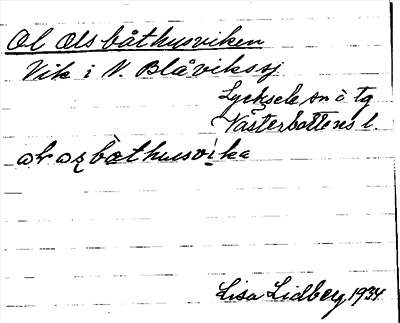 Ol Ols båthusviken
Vik i N. Blåvikssj
Lycksele sn o tg
Västerbottens l.
båthusvika
Lisa Lidberg 1934